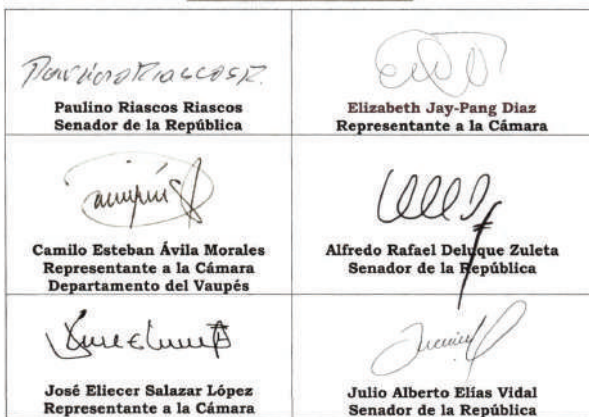 Paulino Riascos R.
Paulino Riascos Riascos
Senador de la República
Elizabeth Jay-Pang Diaz
Representante a la Cámara
Camilo Esteban Ávila Morales
Representante a la Cámara
Departamento del Vaupés
Alfredo Rafael Deluque Zuleta
Senador de la República
José Eliecer Salazar López
Representante a la Cámara
Julio Alberto Elías Vidal
Senador de la República